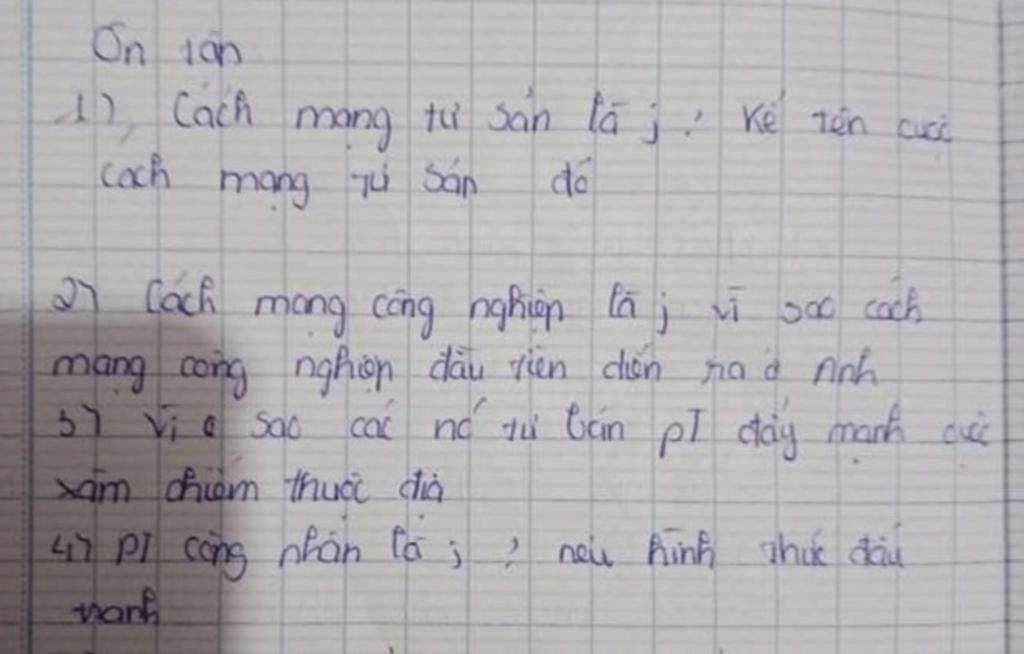 Ôn tập
1), Cách mạng tư sản là j ? Kể tên cuộc
cách mạng tư sản đó
2) Cách mạng công nghiệp là j vì sao cách
mạng công nghiệp đầu tiên diễn ra ở Anh
3) Vì sao các nc tư bản pT đẩy mạnh cuộc
xâm chiếm thuộc địa
4) PT công nhân là j ? nêu hình thức đấu
tranh